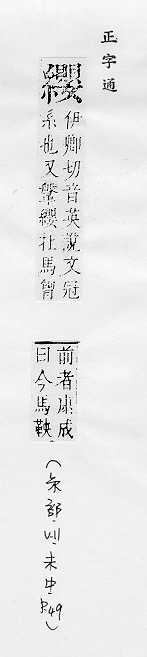 正字通
伊卿切音英說文冠
系也又繁纓在馬胷
前者康成
曰今馬鞅
(糸部
P.49)